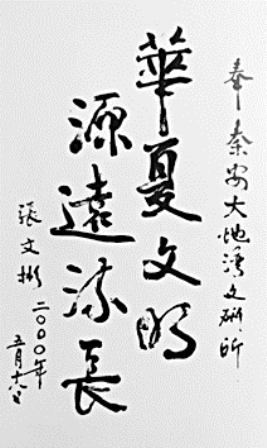 奉秦安大地湾文研所
華夏文明
源遠流長
張文彬
二〇〇〇年
五月十六日